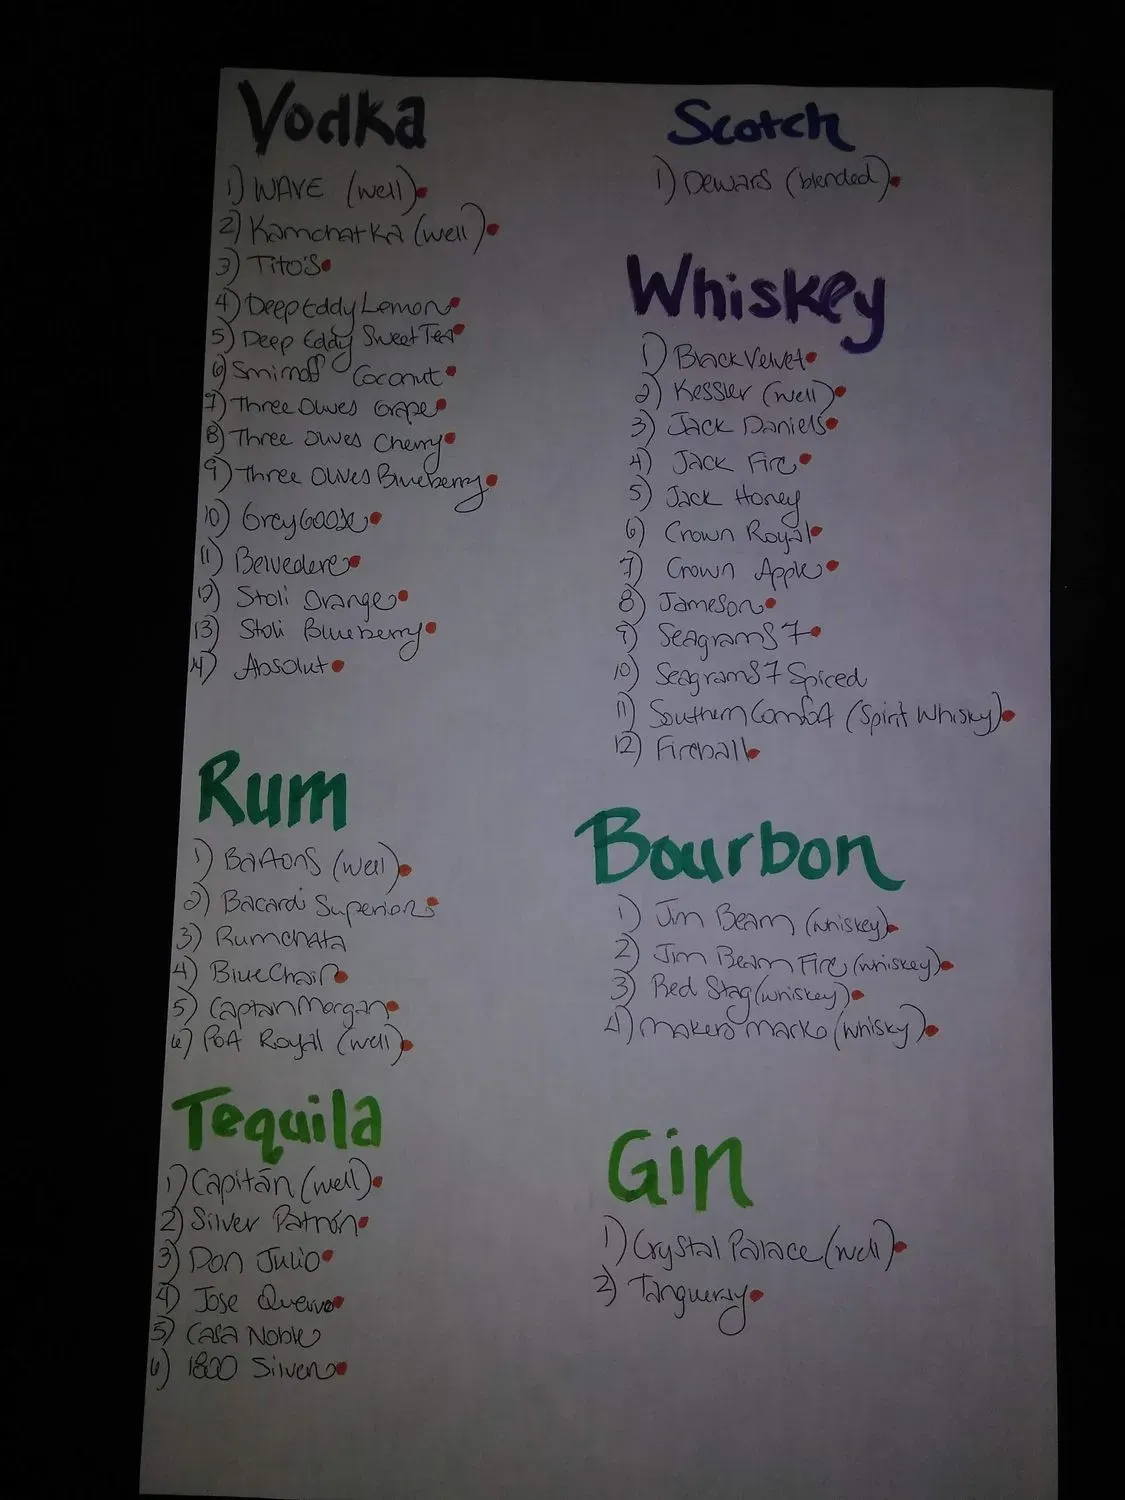 Vodka
1) WAVE (well)
2) Kamchatka (well)
3) Tito's
4) Deep Eddy Lemon
5) Deep Eddy Sweet Tea
6) Smirnoff Coconut
7) Three Olives Grape
8) Three Olives Cherry
9) Three Olives Blueberry
10) Grey Goose
11) Belvedere
12) Stoli Orange
13) Stoli Blueberry
14) Absolut
Rum
1) Bartons (well)
2) Bacardi Superior
3) Rumchata
4) Blue Chair
5) Captan Morgan
6) Port Royal (well)
Tequila
1) Capitán (well)
2) Silver Patrón
3) Don Julio
4) Jose Quervo
5) Casa Noble
6) 1800 Silver
Scotch
1) Dewars (blended)
Whiskey
1) Black Velvet
2) Kessler (well)
3) Jack Daniels
4) Jack Fire
5) Jack Honey
6) Crown Royal
7) Crown Apple
8) Jameson
9) Seagrams 7
10) Seagrams 7 Spiced
11) Southern Comfort (Spirit Whisky)
12) Fireball
Bourbon
1) Jim Beam (whiskey)
2) Jim Beam Fire (whiskey)
3) Red Stag (whiskey)
4) Makers Mark (whisky)
Gin
1) Crystal Palace (well)
2) Tangueray